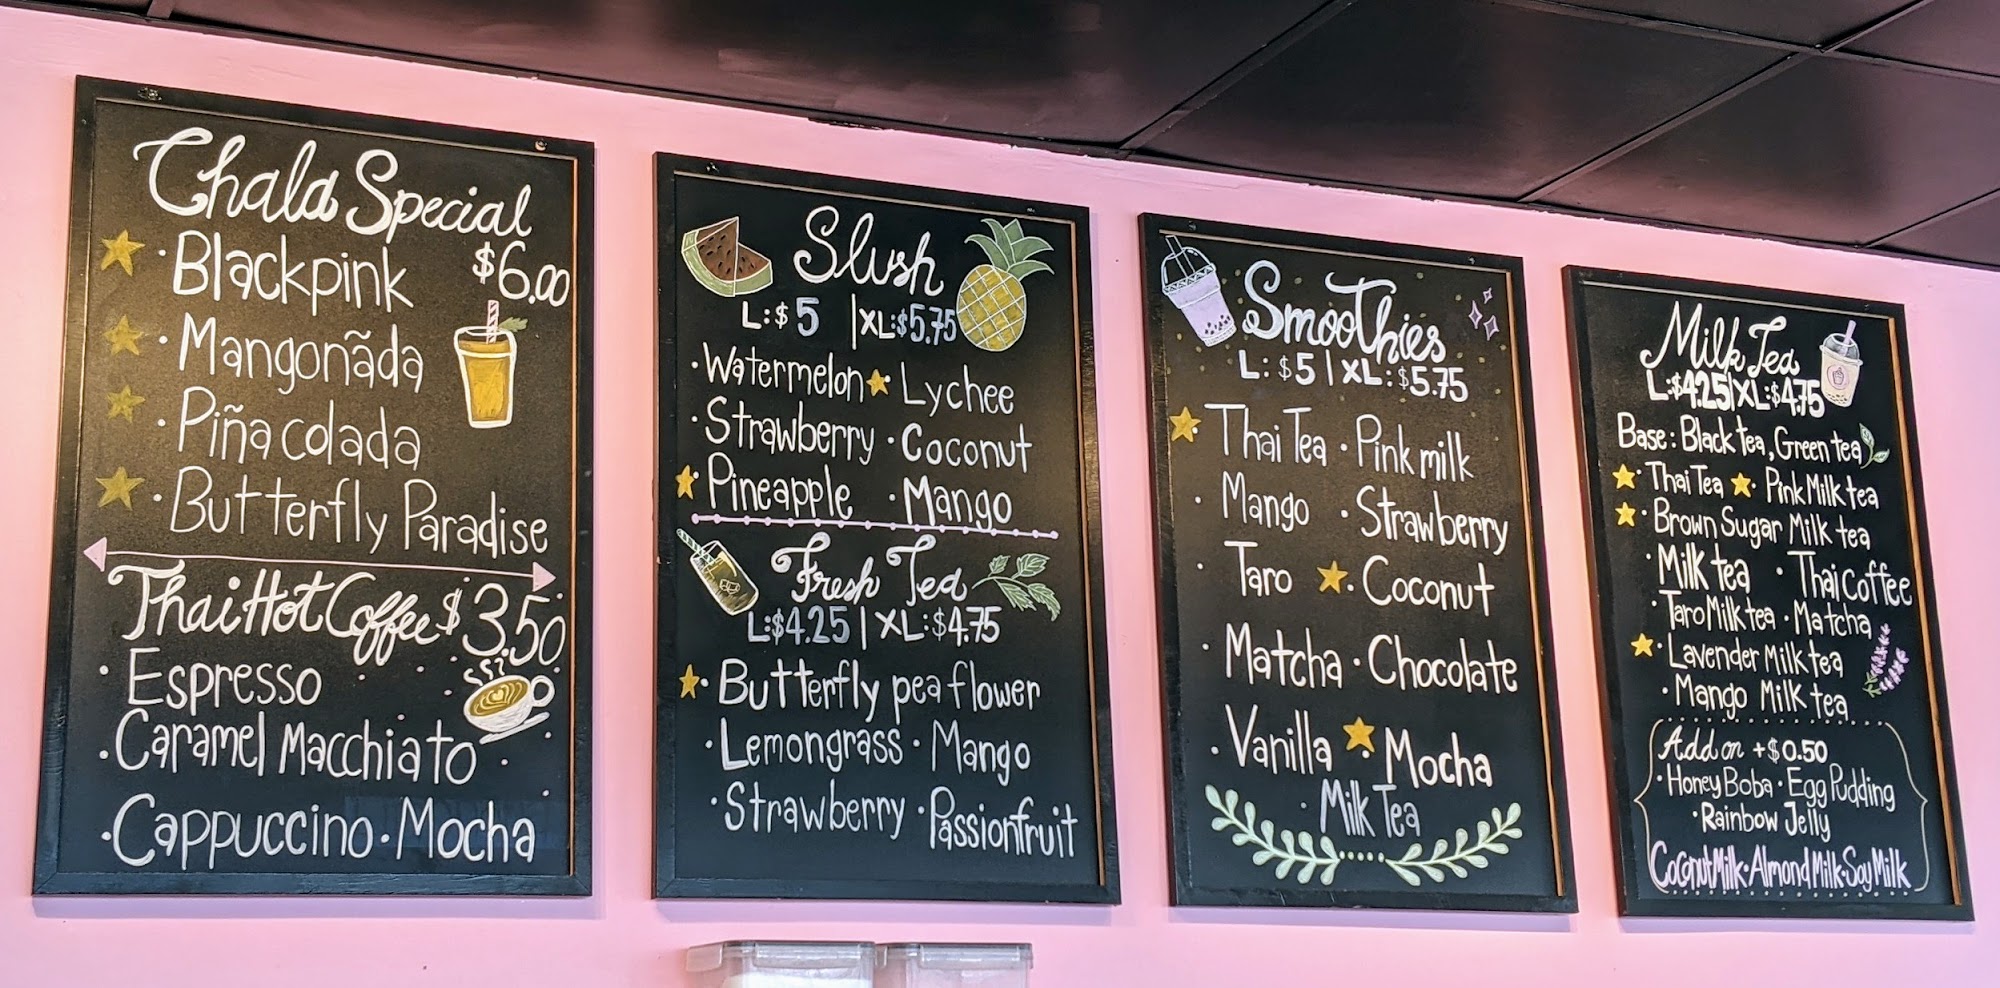 Chala Special
· Blackpink $6.00
· Mangoñada
· Piña colada
· Butterfly Paradise
Thai Hot Coffee $3.50
· Espresso
· Caramel Macchiato
· Cappuccino · Mocha
Slush
L:$5 | XL:$5.75
· Watermelon · Lychee
· Strawberry · Coconut
· Pineapple · Mango
Fresh Tea
L:$4.25 | XL:$4.75
· Butterfly pea flower
· Lemongrass · Mango
· Strawberry · Passionfruit
Smoothies
L: $5 | XL: $5.75
· Thai Tea · Pink milk
· Mango · Strawberry
· Taro · Coconut
· Matcha · Chocolate
· Vanilla · Mocha
· Milk Tea
Milk Tea
L:$4.25 | XL:$4.75
Base: Black tea, Green tea
· Thai Tea · Pink Milk tea
· Brown Sugar Milk tea
· Milk tea · Thai Coffee
· Taro Milk tea · Matcha
· Lavender Milk tea
· Mango Milk tea
Add on +$0.50
· Honey Boba · Egg Pudding
· Rainbow Jelly
Coconut Milk · Almond Milk · Soy Milk